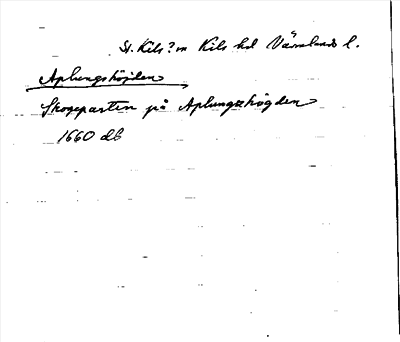 St. Kils? sn Kils hd Värmlands l.
Aplungshöjden
Skogsparten på Aplungzhögden
1660 db